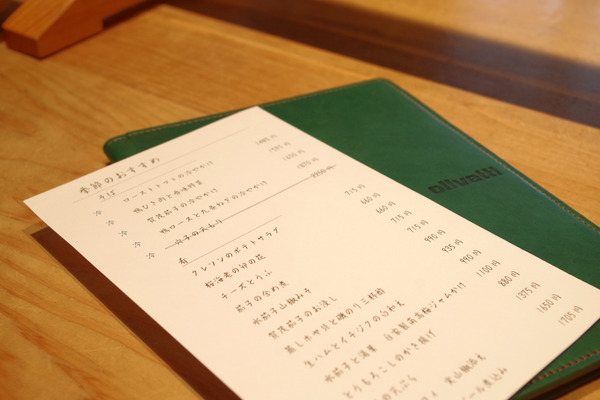 季節のおすすめ
そば
冷 ローストトマトの冷やかけ 1485円
冷 鴨ひき肉と香味野菜 1595円
冷 賀茂茄子の冷やかけ 1650円
冷 鴨ロースと九条ねぎの冷やかけ 1875円
冷 の天もり 2200円
肴
クレソンのポテトサラダ 715円
桜海老の卯の花 660円
チーズとうふ 660円
茄子の含め煮 715円
水茄子山椒みそ 715円
賀茂茄子のお浸し 990円
蒸しホヤ貝と磯のり三杯酢 935円
生ハムとイチジクの白和え 990円
水茄子と湯葉 自家製南高梅ジャムがけ 1100円
とうもろこしのかき揚げ 880円
の天ぷら 1375円
実山椒添え 1650円
ール煮込み 1705円
olivetti